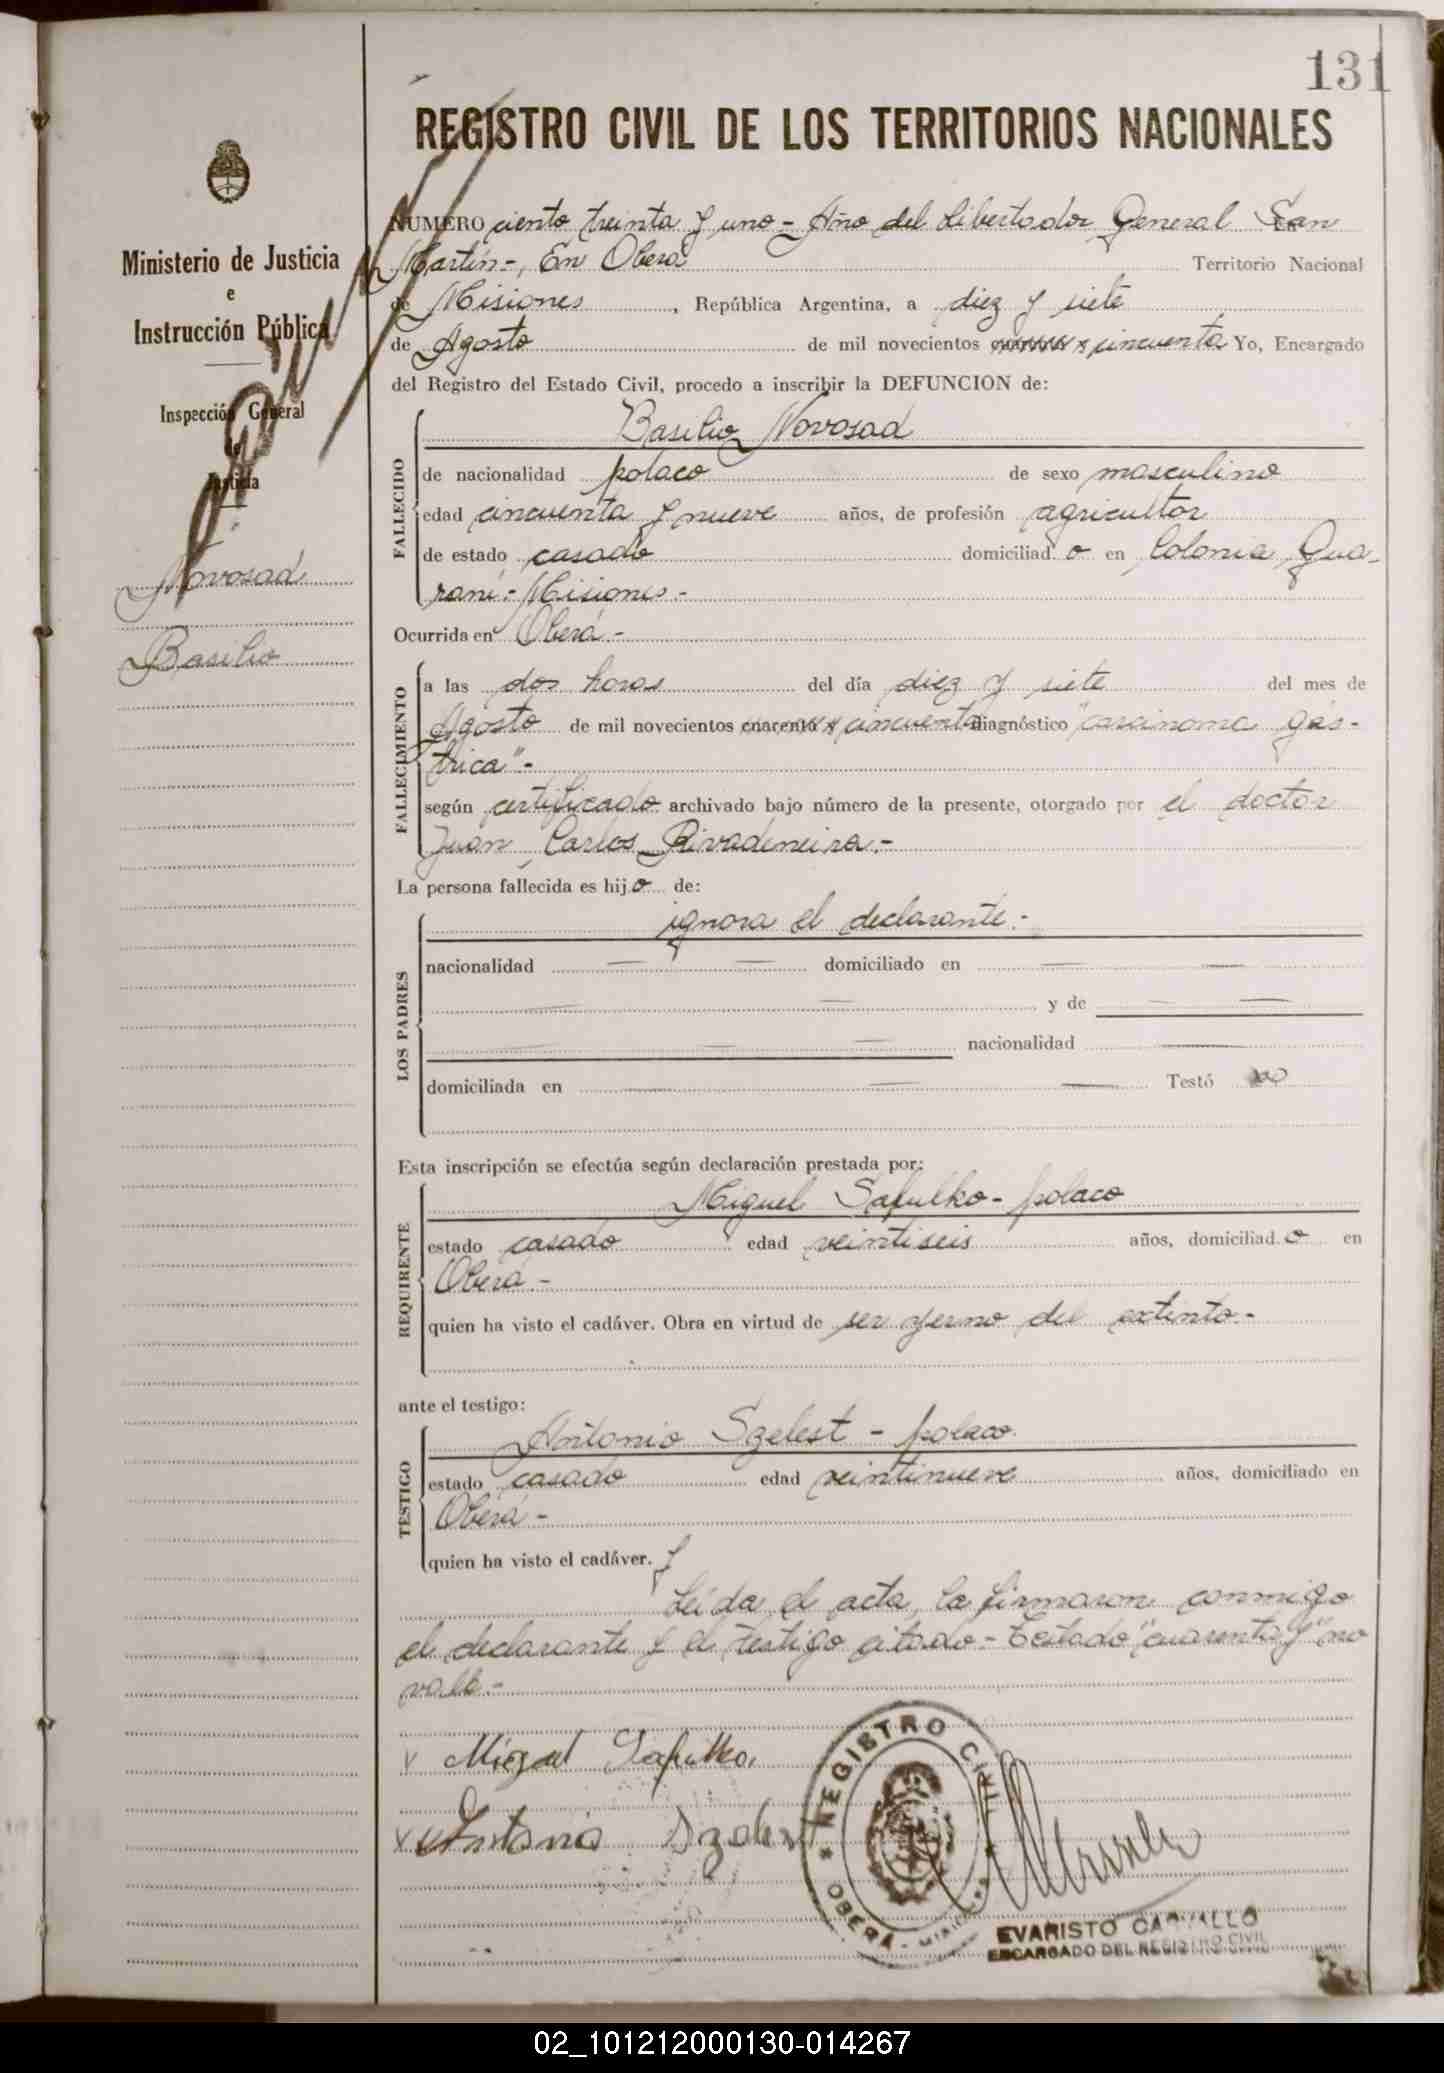 131
REGISTRO CIVIL DE LOS TERRITORIOS NACIONALES
Ministerio de Justicia
e
Instrucción Pública
Inspección General
de
Justicia
Novosad
Basilio
NUMERO ciento treinta y uno - Año del Libertador General San
Martín-, En Oberá Territorio Nacional
de Misiones, República Argentina, a diez y siete
de Agosto de mil novecientos cincuenta Yo, Encargado
del Registro del Estado Civil, procedo a inscribir la DEFUNCION de:
FALLECIDO
Basilio Novosad
de nacionalidad polaco de sexo masculino
edad cincuenta y nueve años, de profesión agricultor
de estado casado domiciliado en Colonia Gua-
raní.- Misiones.-
Ocurrida en Oberá-
FALLECIMIENTO
a las dos horas del día diez y siete del mes de
Agosto de mil novecientos cuarenta y cincuenta diagnóstico "carcinoma gás-
trica"-
según certificado archivado bajo número de la presente, otorgado por el doctor
Juan Carlos Rivadeneira.-
La persona fallecida es hijo de:
LOS PADRES
ignora el declarante.-
nacionalidad — — domiciliado en — —
— — y de — —
— — — nacionalidad —
domiciliada en — — — Testó no
Esta inscripción se efectúa según declaración prestada por:
REQUIRENTE
Miguel Sapulko - polaco
estado casado edad veintiseis años, domiciliado en
Oberá.-
quien ha visto el cadáver. Obra en virtud de ser yerno del extinto.-
ante el testigo:
TESTIGO
Antonio Szelest - polaco.
estado casado edad veintinueve años, domiciliado en
Oberá-
quien ha visto el cadáver. y
Leída el acta, la firmaron conmigo
el declarante y el testigo citado- Testado "cuarenta y" no
vale.-
Miguel Sapulko
Antonio
REGISTRO CIVIL
OBERA - MISIONES
EVARISTO CARVALLO
ENCARGADO DEL REGISTRO CIVIL
02_101212000130-014267